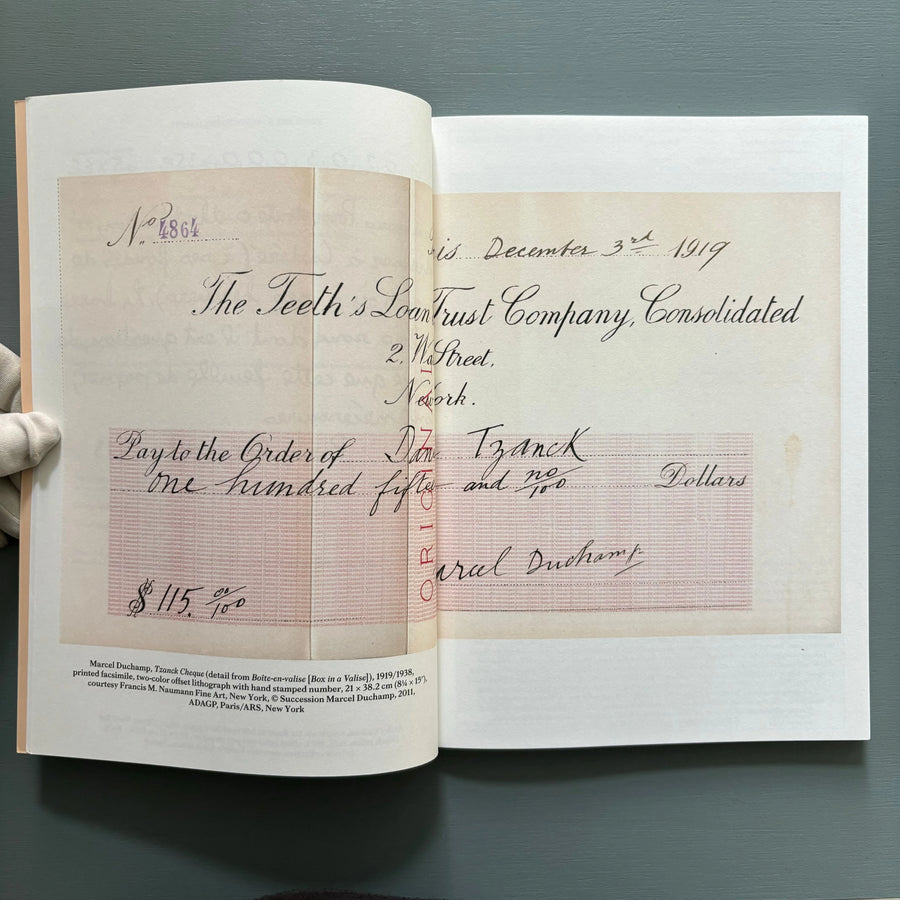 No. 4864
is December 3rd 1919
The Teeth's Loan Trust Company, Consolidated
2, Wa Street,
New ork.
Pay to the Order of Dan Tzanck
one hundred fiftee and no/100 Dollars
ORIGINAL
arcel Duchamp
$ 115. oo/100
Marcel Duchamp, Tzanck Cheque (detail from Boîte-en-valise [Box in a Valise]), 1919/1938,
printed facsimile, two-color offset lithograph with hand stamped number, 21 × 38.2 cm (8¼ × 15"),
courtesy Francis M. Naumann Fine Art, New York, © Succession Marcel Duchamp, 2011,
ADAGP, Paris/ARS, New York